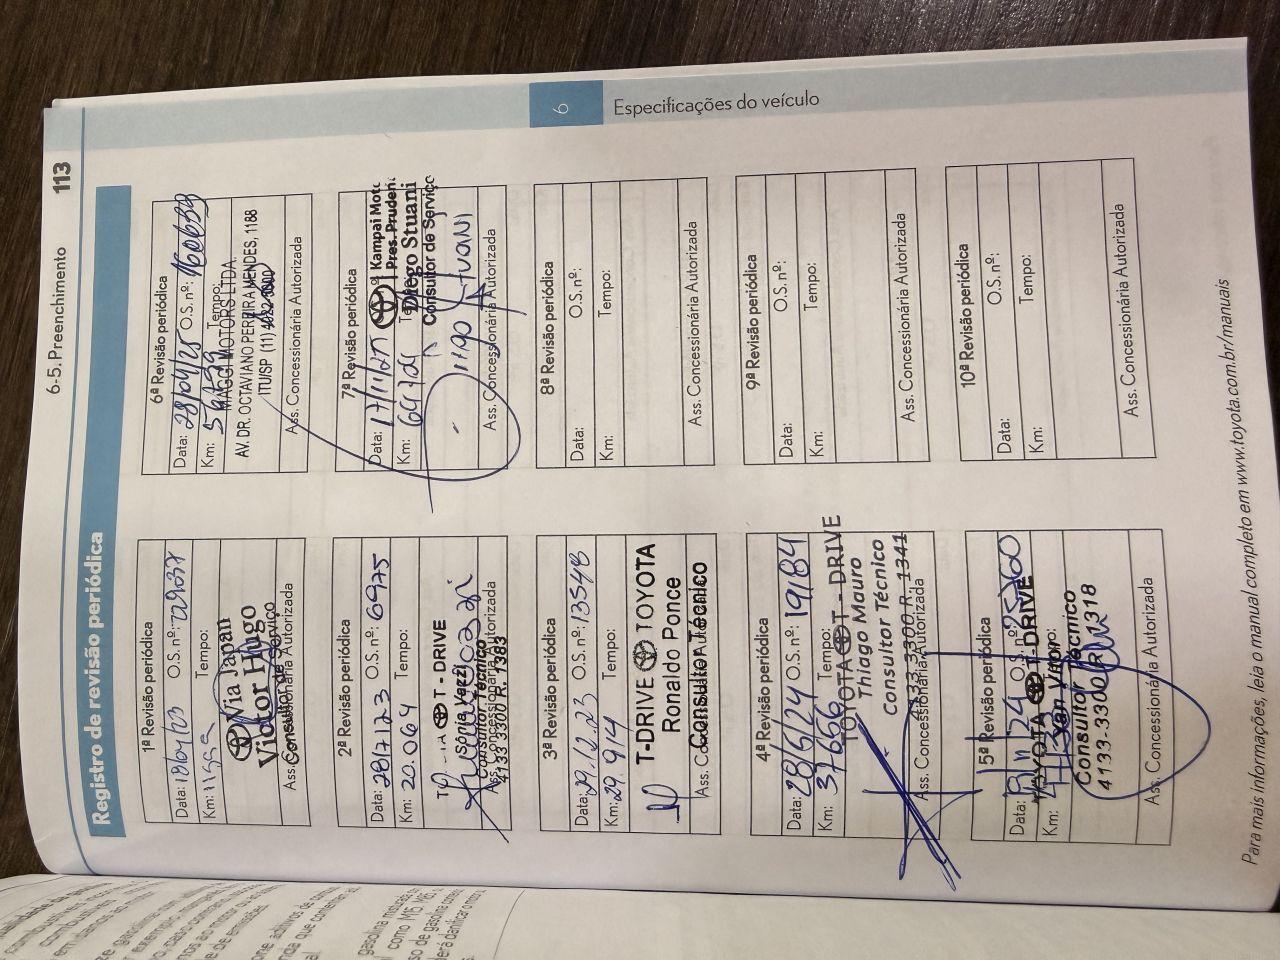 6-5. Preenchimento 113
Registro de revisão periódica
1ª Revisão periódica
Data: 18/04/23 O.S. nº:
Km: Tempo:
Via Japan
Victor Hugo
Consultor de Serviço
Ass. Concessionária Autorizada
2ª Revisão periódica
Data: 28/7/23 O.S. nº: 6975
Km: 20.064 Tempo:
T-DRIVE
Sonia Vezzi
Consultor Técnico
4133 3300 R. 1383
Ass. Concessionária Autorizada
3ª Revisão periódica
Data: 29.12.23 O.S. nº: 13548
Km: 29.914 Tempo:
T-DRIVE TOYOTA
Ronaldo Ponce
Consultor Técnico
Ass. Concessionária Autorizada
4ª Revisão periódica
Data: 28/6/24 O.S. nº: 19184
Km: 37666 Tempo:
TOYOTA T-DRIVE
Thiago Mauro
Consultor Técnico
4133-3300 R. 1341
Ass. Concessionária Autorizada
5ª Revisão periódica
Data: O.S. nº:
Km: Tempo:
TOYOTA T-DRIVE
Consultor Técnico
4133-3300 R. 1318
Ass. Concessionária Autorizada
6ª Revisão periódica
Data: 28/04/25 O.S. nº:
Km: Tempo:
MAGGI MOTORS LTDA.
AV. DR. OCTAVIANO PEREIRA MENDES, 1188
ITU/SP (11)
Ass. Concessionária Autorizada
7ª Revisão periódica
Data: 17/11/25 Kampai Moto
Km: Pres. Pruden
Diego Stuani
Consultor de Serviço
Ass. Concessionária Autorizada
8ª Revisão periódica
Data: O.S. nº:
Km: Tempo:
Ass. Concessionária Autorizada
9ª Revisão periódica
Data: O.S. nº:
Km: Tempo:
Ass. Concessionária Autorizada
10ª Revisão periódica
Data: O.S. nº:
Km: Tempo:
Ass. Concessionária Autorizada
6
Especificações do veículo
Para mais informações, leia o manual completo em www.toyota.com.br/manuais